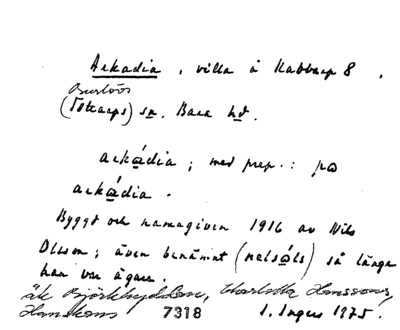 Arkadia, villa å Kabbarp 8,
Burlövs
(Tottarps) sn. Bara hd.
arkádia; med prep.: pɑ
arkádia.
Byggd och namngiven 1916 av Nils
Olsson; även benämnt (nelsáls) så länge
han var ägare.
äk Björkhyddan, Charlotta Hanssons,
7318 I. Ingers 1975.